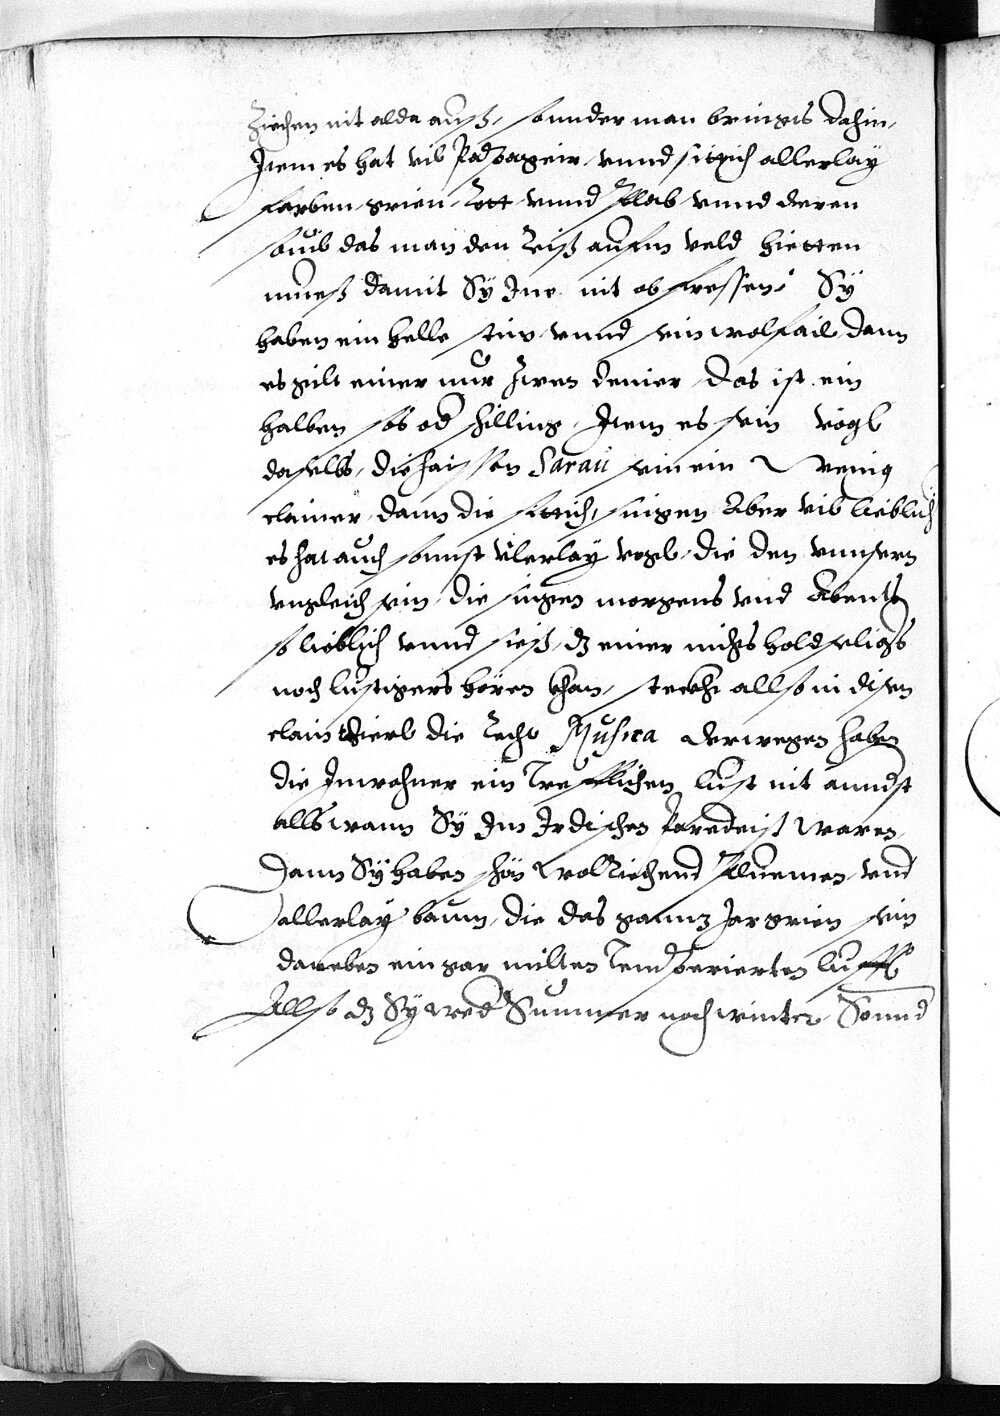 Ziechen nit alda auß, sounder man bringts dahin,
Item es hat vil Padpageir, vnnd sittich allerlay
farben, grien, Rott vnnd Plab, vnnd deren
souil das man den Reiß aufm veld hietten
mueß damit Sy Ine nit ab fressen, Sy
haben ein helle stim vnnd sein wolfail, dann
es gilt einer nur Zwen denier, das ist ein
halben ß od schilling, Item es sein vögl
daselbs, die haissen Sarau sein ein wenig
clainer dann die sittich, singen Aber vil lieblich
es hat auch sonnst vilerlay vogl, die den vnnsern
vngleich sein, die singen morgens vnd Abents
so lieblich vnnd sieß, dz einer nichts holdseligs
noch lustigers hören khan, steckht allso in disen
clain thierl die Recht Musica derwegen haben
die Inwohner ein Trefflichen lust nit annderst
alls wann Sy Im Irdischen Paredeiß waren,
Dann Sy haben schön wolriechend Pluemen, vnd
allerlay baum, die das gannz Jar grien sein
daneben ein gar milten Temperierten lufft
Allso dz Sy wed Summer noch winter, Sonnd